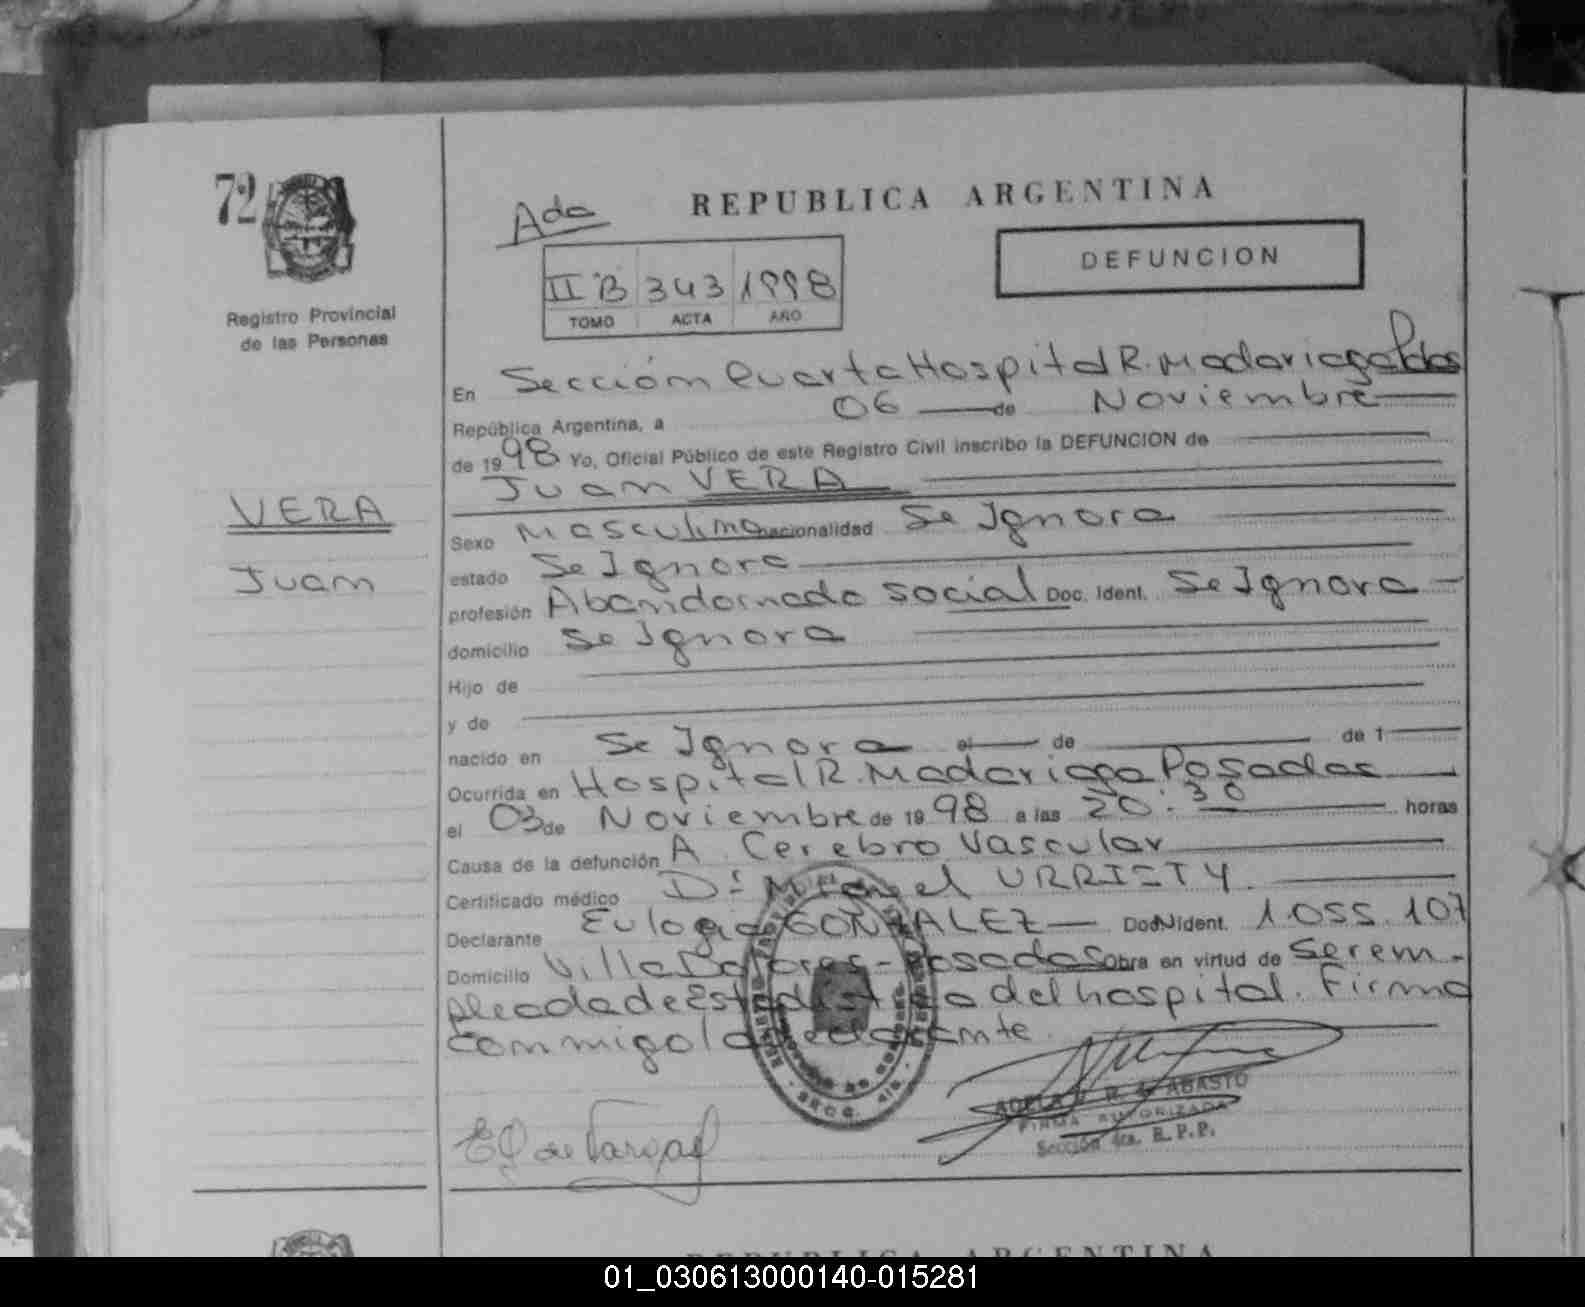 72
Registro Provincial
de las Personas
VERA
Juan
REPUBLICA ARGENTINA
Ada
DEFUNCION
II B 343 1998
TOMO ACTA AÑO
En Sección Cuarta Hospital R. Madariaga Pdas
República Argentina, a 06 de Noviembre
de 1998 Yo, Oficial Público de este Registro Civil inscribo la DEFUNCION de
Juan VERA
Sexo Masculino nacionalidad Se Ignora
estado Se Ignora
profesión Abandonado social Doc. Ident. Se Ignora
domicilio Se Ignora
Hijo de
y de
nacido en Se Ignora el de de 1
Ocurrida en Hospital R. Madariaga Posadas
el 03 de Noviembre de 1998 a las 20:30 horas
Causa de la defunción A. Cerebro Vascular
Certificado médico Dr. URRISTY.
Declarante Eulogia GONZALEZ Doc. Ident. 1.055.107
Domicilio Villa Dolores - Posadas Obra en virtud de Ser em-
pleada de Estadística del hospital. Firma
conmigo la declarante.
R. ABASTO
FIRMA AUTORIZADA
Sección 4ta. R.P.P.
REPUBLICA ARGENTINA
01_030613000140-015281